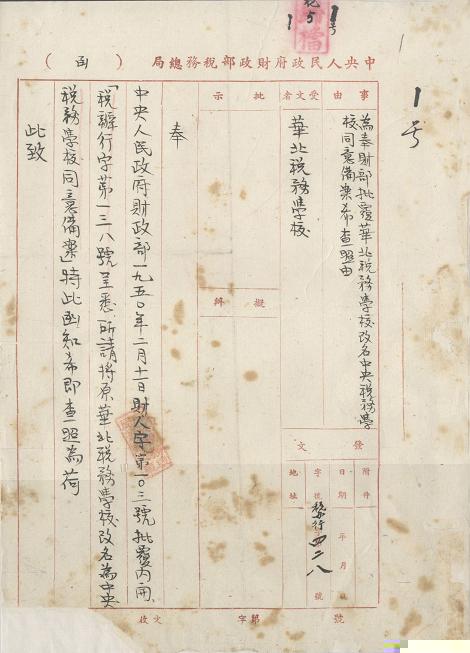 1号
中央人民政府財政部稅務總局（函）
事由
為奉財部批覆華北稅務學校改名中央稅務學
校同意備案希查照由
受文者
華北稅務學校
批示
擬辦
發文
附件
日期 年 月 日
字號 號
四二八
地址
奉
中央人民政府財政部一九五〇年二月十一日財人字第一〇三號批覆內開
「稅辦行字第一三八號呈悉所請將原華北稅務學校改名為中央
稅務學校同意備案」特此函知希即查照為荷
此致
收文 字第 號